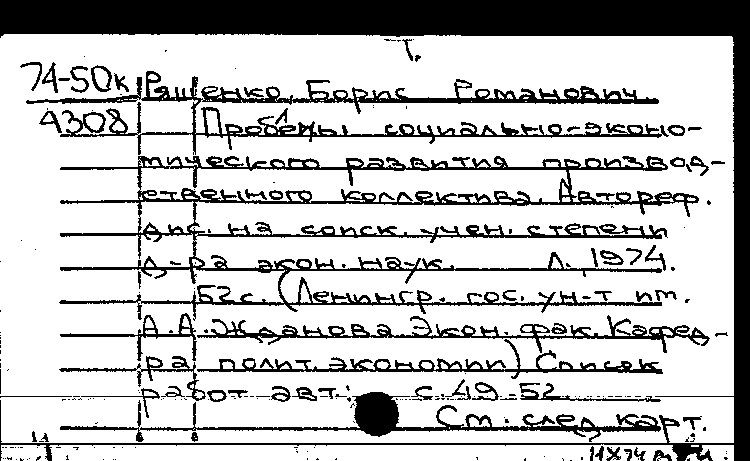 Т.
74-50к Рященко, Борис Романович.
4308 Проблемы социально-эконо-
мического развития производ-
ственного коллектива. Автореф.
дис. на соиск. учен. степени
д-ра экон. наук. Л., 1974.
52 с. (Ленингр. гос. ун-т им.
А.А. Жданова. Экон. фак. Кафед-
ра полит. экономии) Список
работ авт.: с. 49-52.
См. след. карт.